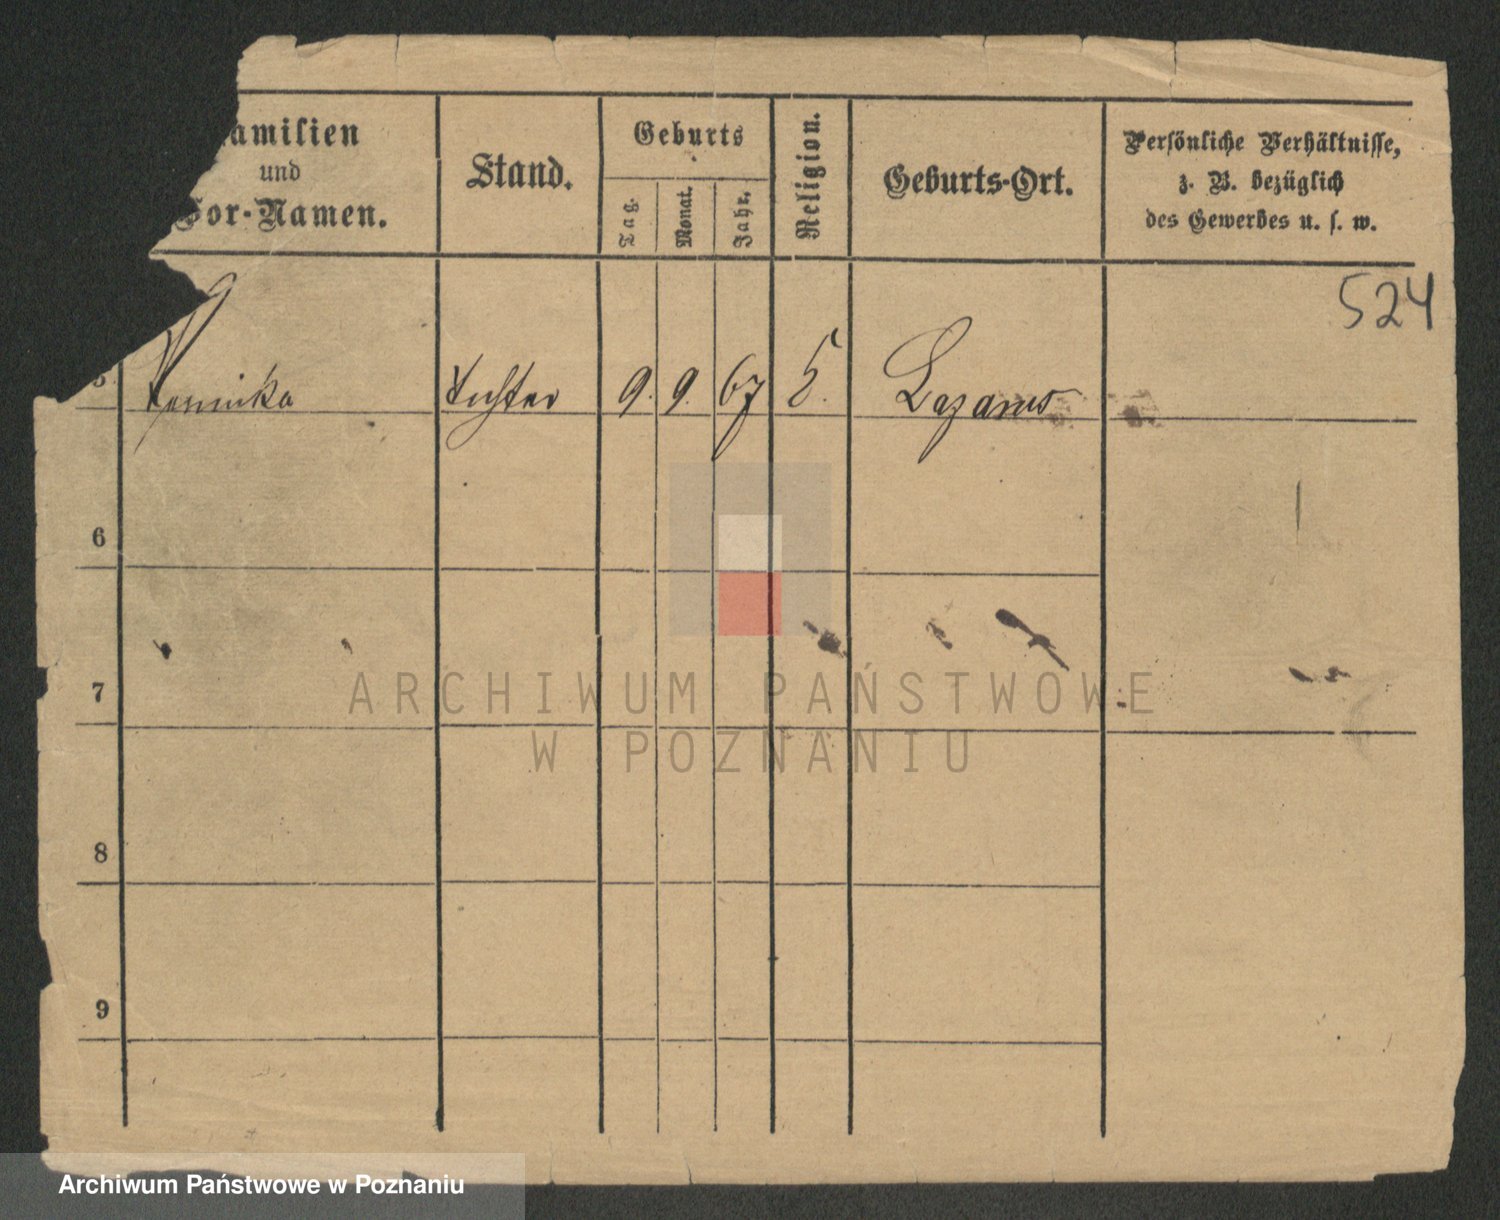 Familien
und
Vor-Namen.
Stand.
Geburts
Tag.
Monat.
Jahr.
Religion.
Geburts-Ort.
Persönliche Verhältnisse,
z. B. bezüglich
des Gewerbes u. s. w.
524
5 Tochter 9. 9. 67 Lazarus
6
7
8
9
ARCHIWUM PAŃSTWOWE
W POZNANIU
Archiwum Państwowe w Poznaniu